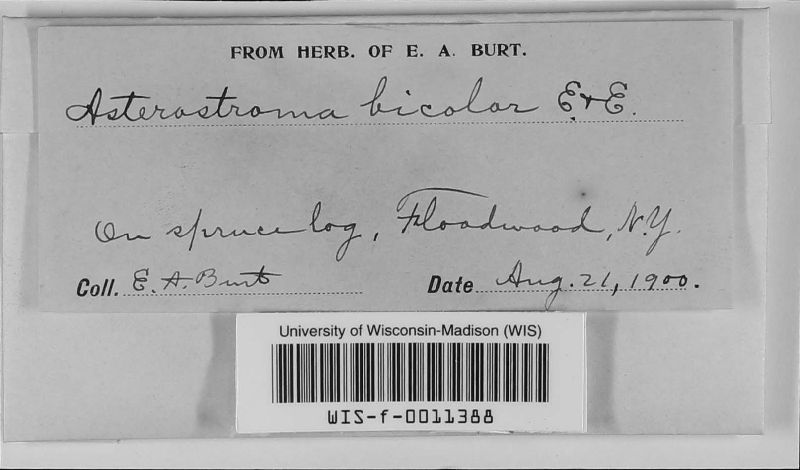 FROM HERB. OF E. A. BURT.
Asterostroma bicolor E. & E.
On spruce log, Floodwood, N.Y.
Coll. E. A. Burt Date Aug. 21, 1900.
University of Wisconsin-Madison (WIS)
WIS-f-0011388